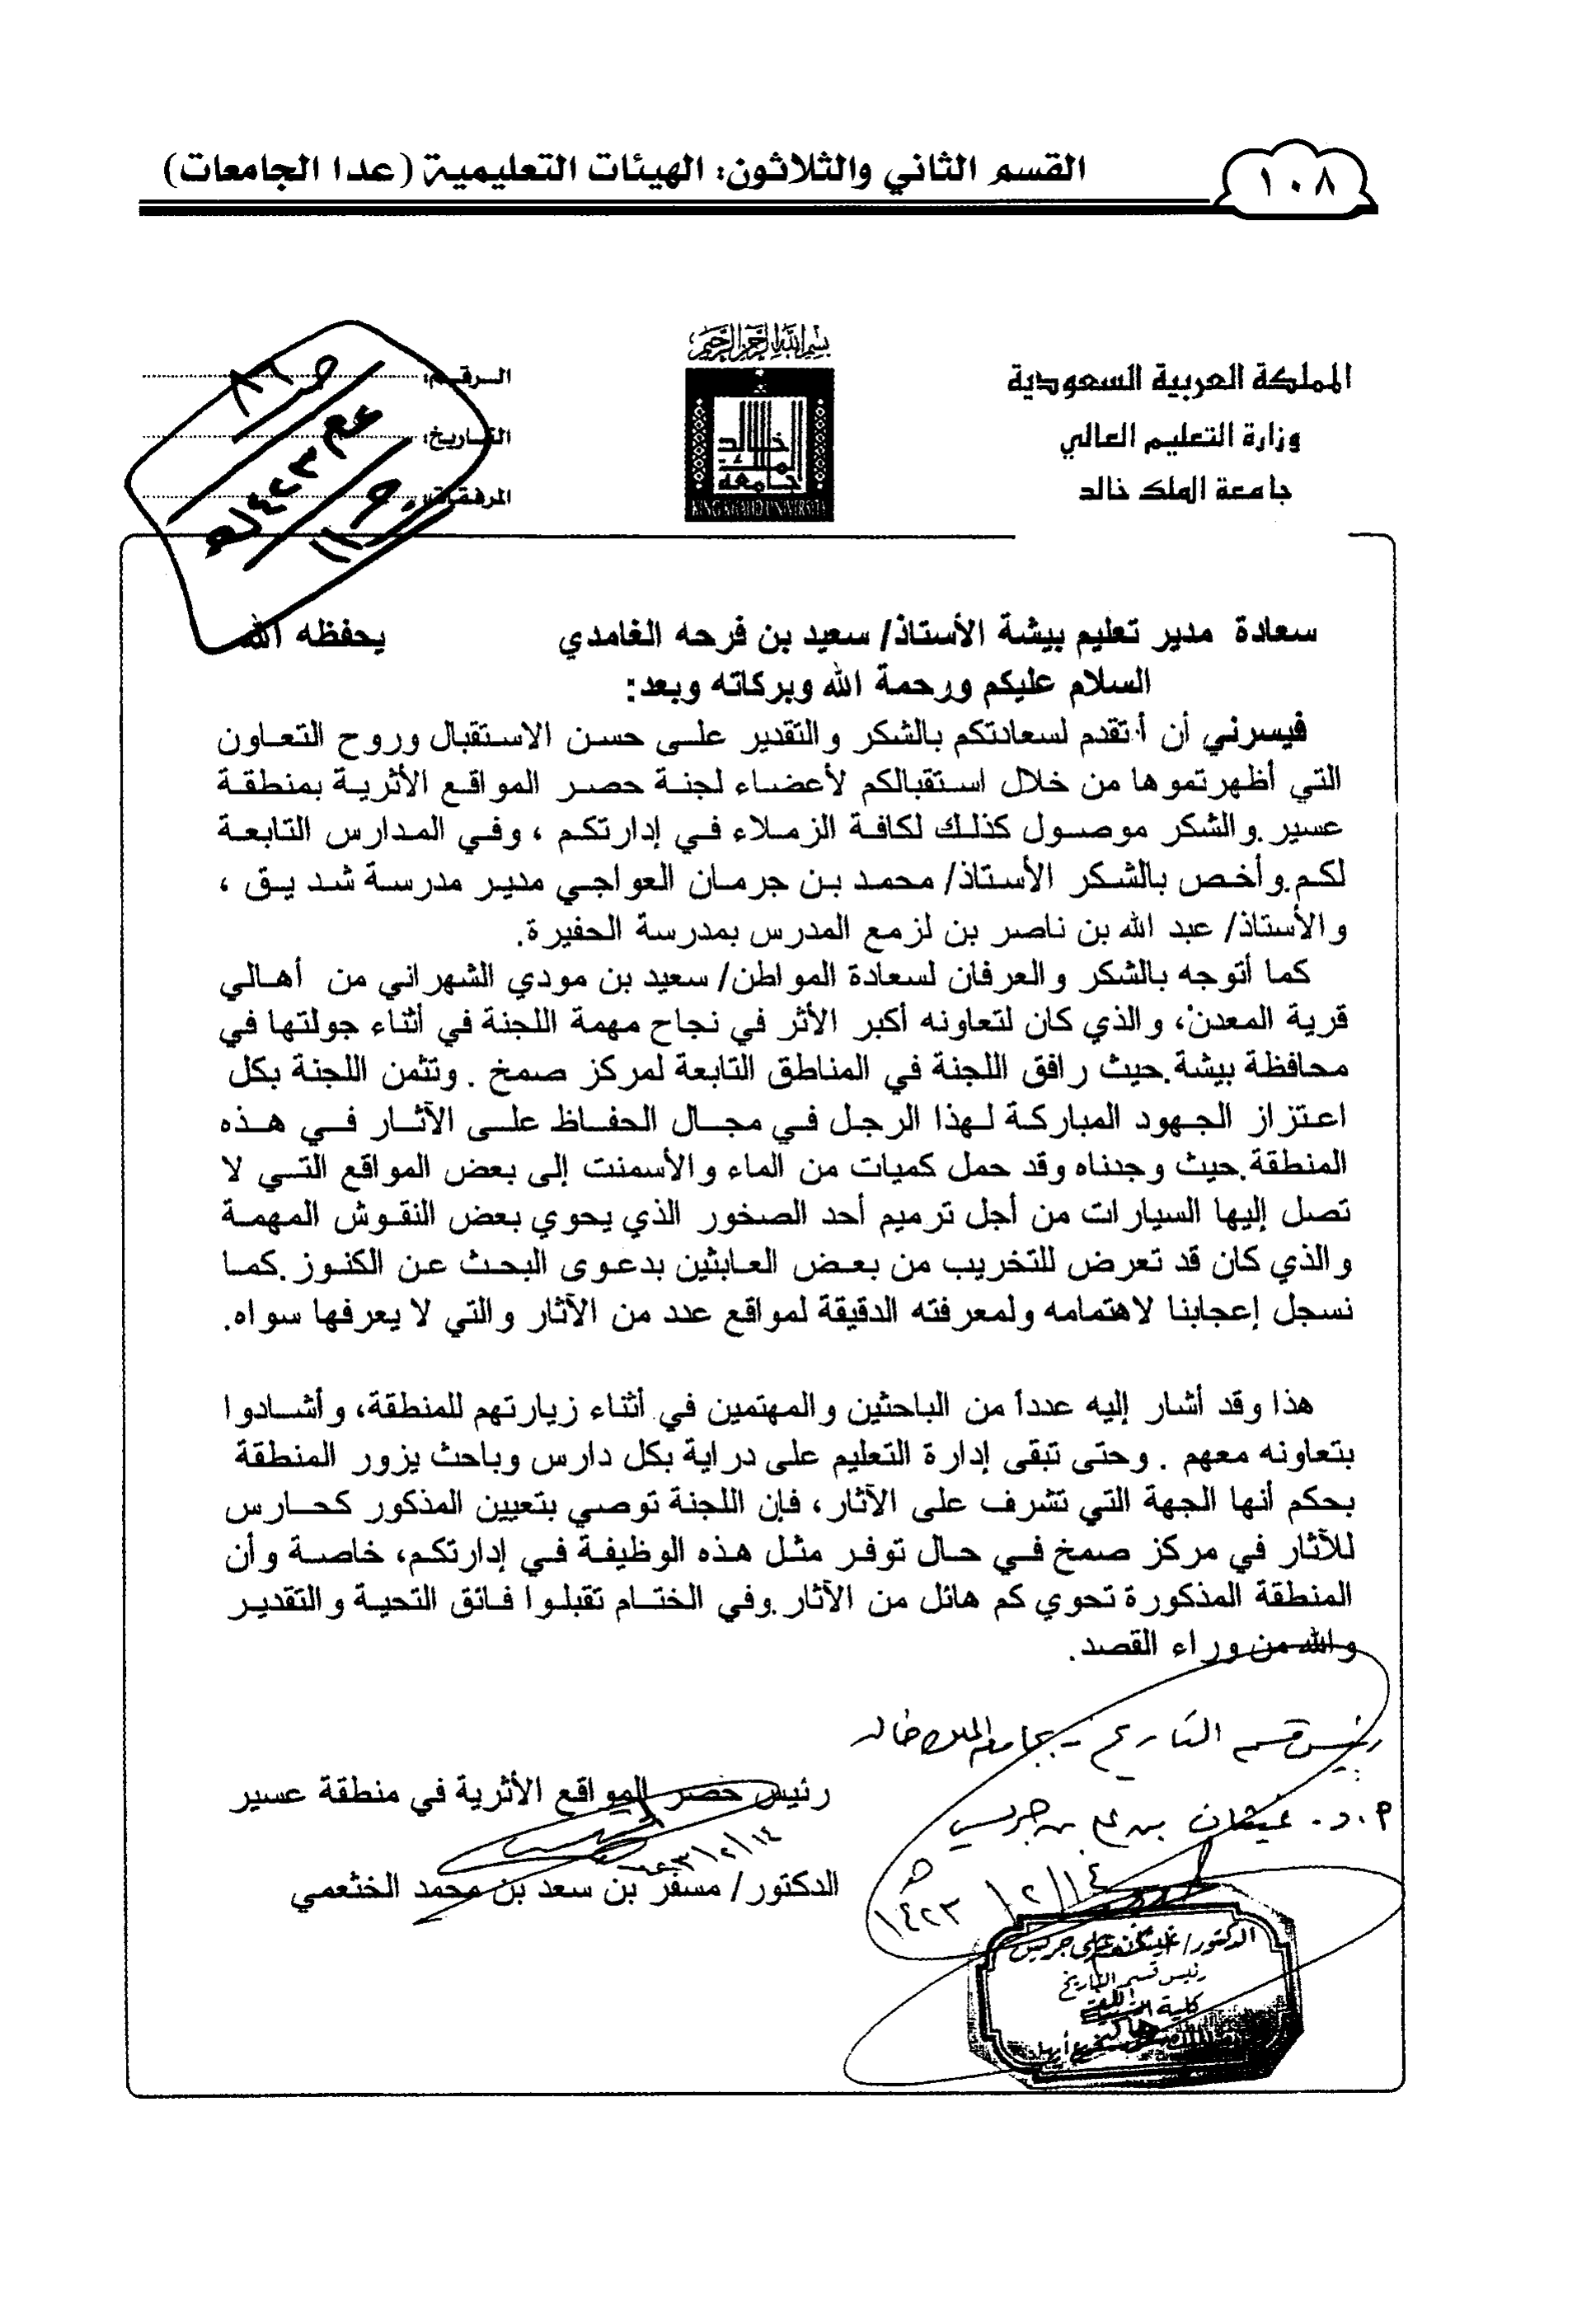 ١٠٨
القسم الثاني والثلاثون: الهيئات التعليمية (عدا الجامعات)
بسم الله الرحمن الرحيم
المملكة العربية السعودية
وزارة التعليم العالي
جامعة الملك خالد
جامعة الملك خالد
KING KHALID UNIVERSITY
الرقم:
التاريخ:
المرفقات:
سعادة مدير تعليم بيشة الأستاذ/ سعيد بن فرحه الغامدي يحفظه الله
السلام عليكم ورحمة الله وبركاته وبعد:
فيسرني أن أتقدم لسعادتكم بالشكر والتقدير على حسن الاستقبال وروح التعاون
التي أظهرتموها من خلال استقبالكم لأعضاء لجنة حصر المواقع الأثرية بمنطقة
عسير.والشكر موصول كذلك لكافة الزملاء في إدارتكم ، وفي المدارس التابعة
لكم.وأخص بالشكر الأستاذ/ محمد بن جرمان العواجي مدير مدرسة شديق ،
والأستاذ/ عبد الله بن ناصر بن لزمع المدرس بمدرسة الحفيرة.
كما أتوجه بالشكر والعرفان لسعادة المواطن/ سعيد بن مودي الشهراني من أهالي
قرية المعدن، والذي كان لتعاونه أكبر الأثر في نجاح مهمة اللجنة في أثناء جولتها في
محافظة بيشة.حيث رافق اللجنة في المناطق التابعة لمركز صمخ . وتثمن اللجنة بكل
اعتزاز الجهود المباركة لهذا الرجل في مجال الحفاظ على الآثار في هذه
المنطقة.حيث وجدناه وقد حمل كميات من الماء والأسمنت إلى بعض المواقع التي لا
تصل إليها السيارات من أجل ترميم أحد الصخور الذي يحوي بعض النقوش المهمة
والذي كان قد تعرض للتخريب من بعض العابثين بدعوى البحث عن الكنوز.كما
نسجل إعجابنا لاهتمامه ولمعرفته الدقيقة لمواقع عدد من الآثار والتي لا يعرفها سواه.
هذا وقد أشار إليه عدداً من الباحثين والمهتمين في أثناء زيارتهم للمنطقة، وأشادوا
بتعاونه معهم . وحتى تبقى إدارة التعليم على دراية بكل دارس وباحث يزور المنطقة
بحكم أنها الجهة التي تشرف على الآثار، فإن اللجنة توصي بتعيين المذكور كحارس
للآثار في مركز صمخ في حال توفر مثل هذه الوظيفة في إدارتكم، خاصة وأن
المنطقة المذكورة تحوي كم هائل من الآثار.وفي الختام تقبلوا فائق التحية والتقدير
والله من وراء القصد.
رئيس قسم التاريخ - بجامعة الملك خالد
رئيس حصر المواقع الأثرية في منطقة عسير
م.د. غيثان بن علي بن جريس
١٤/٢/١٤٢٣هـ
الدكتور/ مسفر بن سعد بن محمد الخثعمي
الدكتور/ غيثان علي جريس
رئيس قسم التاريخ